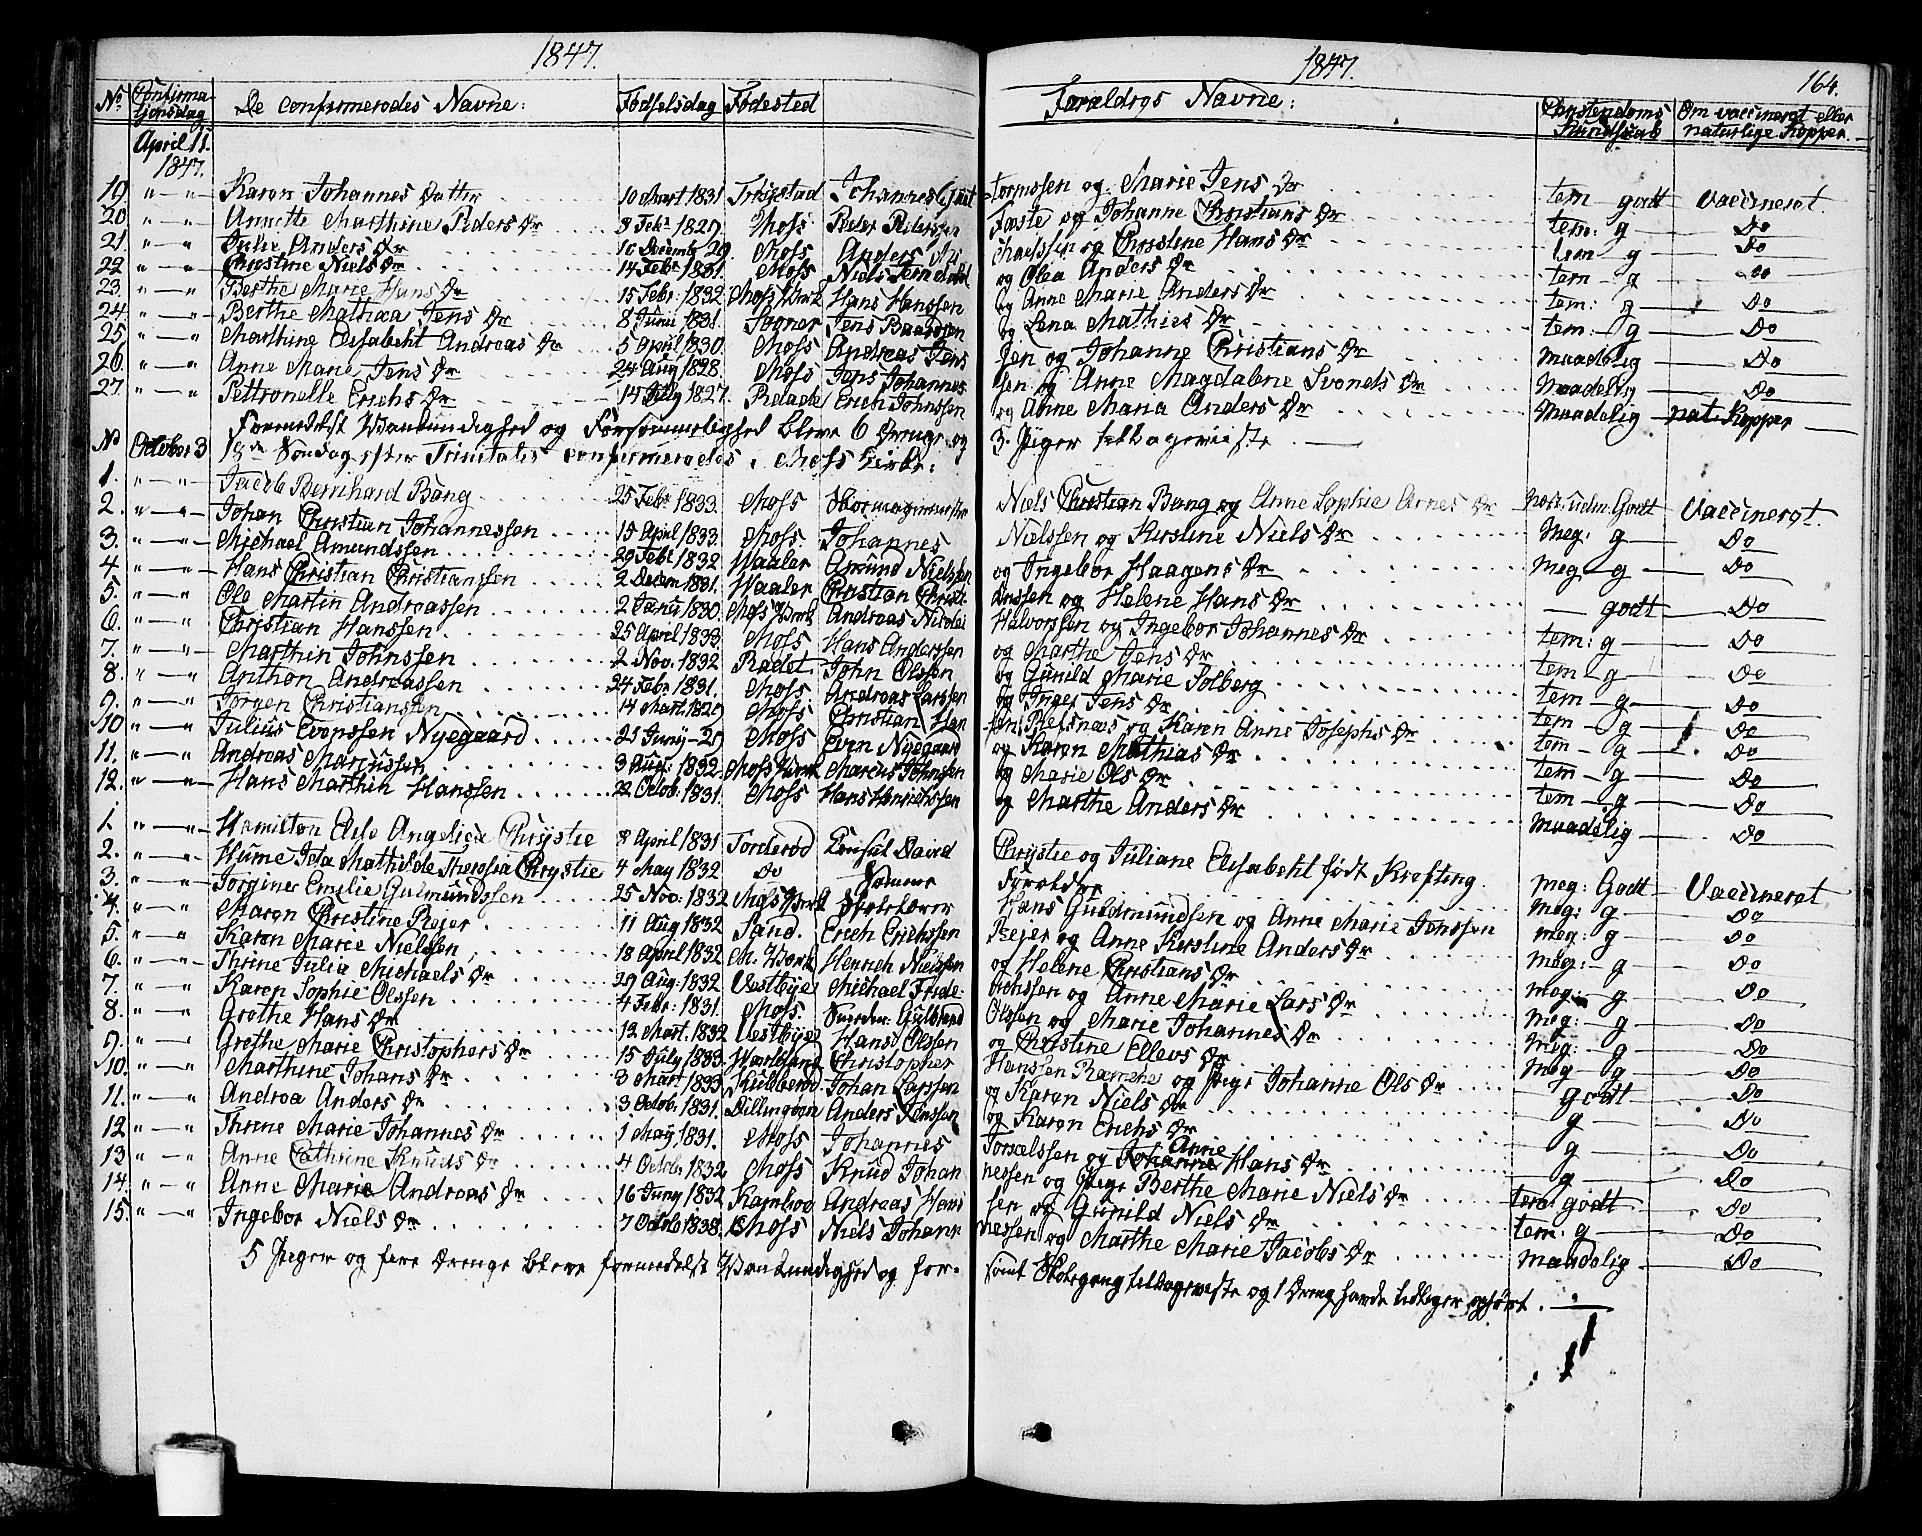 1847.
1847.
164.
No Confirmationsdag De confirmeredes Navne: Fødselsdag Fødested Forældres Navne: Christendoms Kundskab Om vaccineret eller naturlige Kopper.
April 11. 1847.
19. " — " Karen Johannes Datter 10 Mart 1831 Trøgstad Johannes Gut tormssen og Marie Jens Dr tem — godt vaccineret.
20 " — " Annette Marthine Peders Dr 8 Febr 1829 Moss Peder Pederssen Faste og Johanne Christians Dr tem: g Do
21. " — " Julie Anders Dr 16 Decemb 29. Moss Anders Mi chaelssen og Christine Hans Dr tem — g Do
22 " — " Christine Niels Dr 14 Febr 1831. Moss Niels og Olea Anders Dr tem — g Do
23. " — " Berthe Marie Hans Dr 15 Febr. 1832 Moss Værk Hans Hanssen og Anne Marie Anders Dr tem: g Do
24. " — " Berthe Mathea Jens Dr 8 Juni 1831. Sogner Jens Baardsen og Lena Mathies Dr tem: g Do
25. " — " Marthine Elisabeht Andreas Dr 5 April 1830. Moss Andreas Jens sen og Johanne Christians Dr maadelig Do
26. " — " Anne Marie Jens Dr 24 Aug 1828. Moss Jens Johannes sen og Anne Magdalene Svends Dr Maadelig Do
27. " — " Pettronelle Erichs Dr 14 July 1827. Relade Erich Johnssen og Anne Maria Anders Dr Maadelig nat: Kopper
Formedelst Vankundighed og Forsømmelighed bleve 6 Drenge og 3. Piger tilbageviste.
No October 3 18de Søndag efter Trinitatis confirmeredes i Moss Kirke:
1. " — " Jacob Bernhard Bang 25 Febr 1833. Moss Niels Christian Bang og Anne Sophie Arnes Dr Godt Vaccineret.
2. " — " Johan Christian Johannessen 15 April 1833. Moss. Johannes Nielssen og Kirstine Niels Dr Meg: g Do
3. " — " Michael Amundssen 29 Febr 1832 Waaler Amund Nielssen og Ingebor Haagens Dr Meg — g Do
4 " — " Hans Christian Christianssen 2 Decem 1831. Waaler Christian Christi anssen og Helene Hans Dr godt Do
5. " — " Ole Martin Andreassen 2 Janu 1830. Moss Værk Andreas Nicolai Halvorssen og Ingebor Johannes Dr tem: g Do
6. " — " Christian Hanssen 25 April 1833. Moss Hans Anderssen og Marthe Jens Dr tem — g Do
7. " — " Marthin Johnssen 2 Nov: 1832 Radet. John Olssen og Gunild Marie Solberg tem — g Do
8. " — " Anthon Andreassen 24 Febr 1831. Moss Andreas Larssen og Inger Jens Dr tem — g Do
9. " — " Jørgen Christianssen 14 Mart. 1829 Moss Christian Han sen Refsnæs og Karen Anne Josephs Dr tem — g Do
10 " — " Julius Evenssen Nyegaard 21 Juny — 29 Moss Even Nyegaard og Karen Mathias Dr tem — g Do
11. " — " Andreas Marcussen 3 Aug: 1832. Moss Værk Marcus Johnssen og Marie Ols Dr tem — g Do
12. " — " Hans Marthin Hanssen 22 Octob: 1831. Moss Hans Henrichssen og Marthe Anders Dr Maadelig Do
1. " — " Hamilton Else Angelica Chrystie 8 April 1831 Torderød Consul David Chrystie og Juliane Elisabeht født Krefting. Meg: Godt Vaccineret
2. " — " Hume Ida Mathilde Theresia Chrystie 4 May 1832 Do Samme Forældre Meg: g Do
3. " — " Jørginer Emilie Gulmundssen 25 Nov: 1832 Moss Værk Skolelærer Hans Guldmundssen og Anne Marie Jenssen meg: g Do
4. " — " Maren Christine Rejer 11 Aug 1832 Sand. Erich Erichssen Rejer og Anne Kirstine Anders Dr Meg: g Do
5. " — " Karen Marie Nielsen 18 April 1832 M. Værk Henrich Nielssen og Helene Christians Dr meg: g Do
6. " — " Thrine Julia Michaels Dr 29 Aug: 1832 Vestbye Michael Fride richssen og Anne Marie Lars Dr Meg: g Do
7. " — " Karen Sophie Olssen 4 Febr: 1831. Moss. Olssen og Marie Johannes Dr Meg: g Do
8. " — " Grethe Hans Dr 12 Mart. 1832 Vestbye Hans Olssen og Christine Ellevs Dr Meg — g Do
9. " — " Grethe Marie Christophers Dr 15 July 1833 Christopher Hanssen og Pige Johanne Ols Dr godt Do
10. " — " Marthine Johans Dr 3 Mart 1833 Johan Larssen og Karen Niels Dr g Do
11. " — " Andrea Anders Dr 3 Octob: 1831. Dillingøen Anders Jenssen og Karen Erichs Dr g Do
12 " — " Thrine Marie Johannes Dr 1 May, 1831. Moss Johannes Torsælssen og Anne Johanne Hans Dr g Do
13 " — " Anne Cathrine Knuds Dr 4 Octob: 1832. Moss Knud Johan nessen og Pige Berthe Marie Niels Dr tem: godt Do
14. " — " Anne Marie Andreas Dr 16 Juny 1832 Kamboe Andreas Hans sen og Gunild Niels Dr tem: g Do
15. " — " Ingebor Niels Dr 7 Octob 1838. Moss Niels Johann nessen og Marthe Marie Jacobs Dr maadelig Do
5 Piger og fere Drenge bleve formedelst Vankundighed og for- sømt Skolegang tilbageviste og 1 Dreng havde tidligere ophørt.